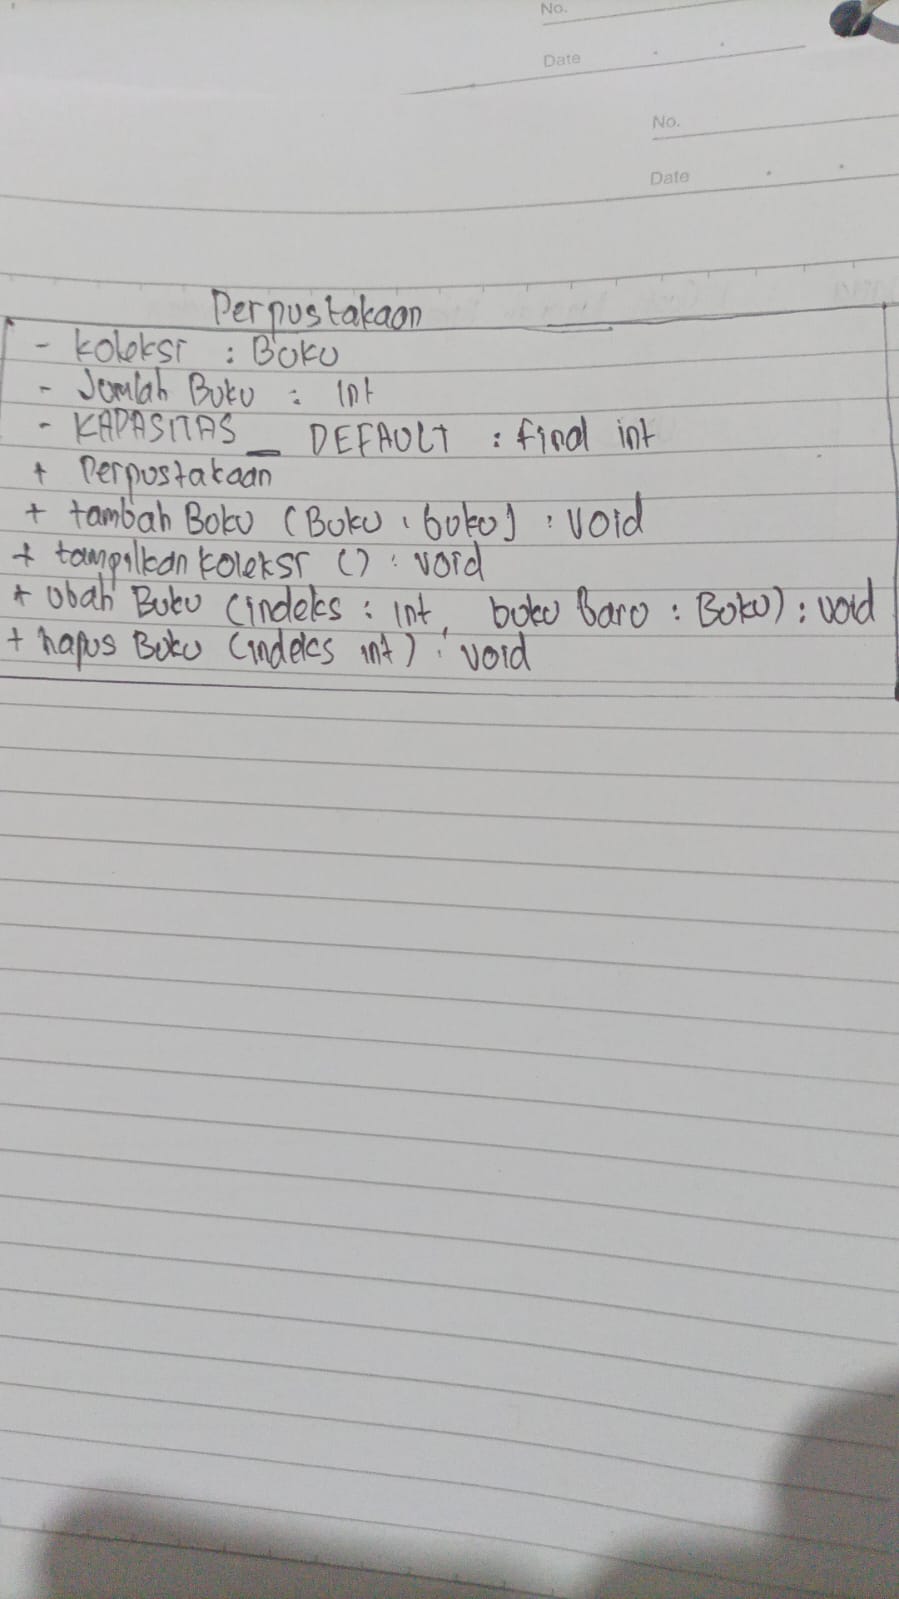 No.
Date
No.
Date
Perpustakaan
- koleksi : Buku
- Jumlah Buku : Int
- KAPASITAS _ DEFAULT : final int
+ Perpustakaan
+ tambah Buku (Buku : buku) : void
+ tampilkan koleksi () : void
+ Ubah Buku (indeks : int, buku Baru : Buku) : void
+ hapus Buku (indeks int) : void